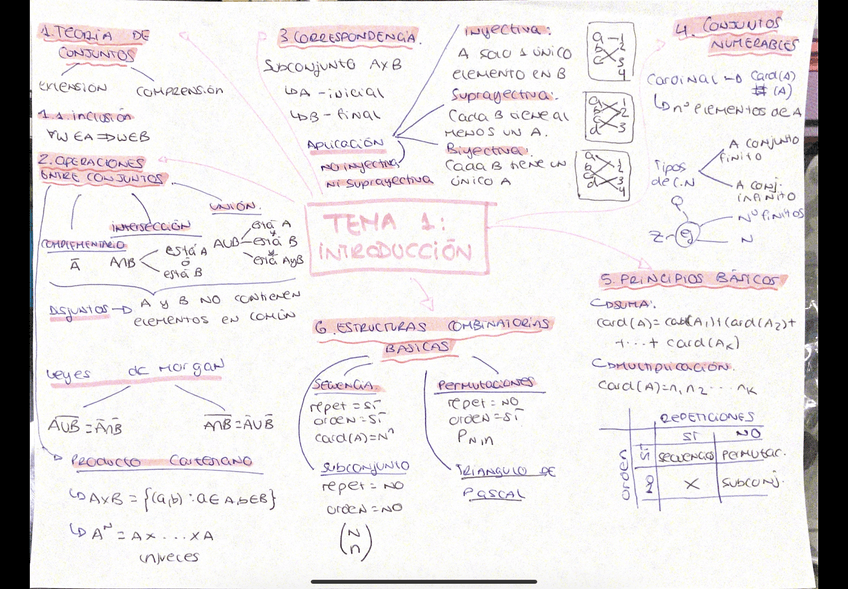 TEMA 1:
INTRODUCCIÓN
1. TEORÍA DE
CONJUNTOS
EXTENSIÓN
COMPRENSIÓN
1.1. inclusión
∀w∈A ⇒ w∈B
2. OPERACIONES
ENTRE CONJUNTOS
COMPLEMENTARIO
Ā
INTERSECCIÓN
A∩B
está A
o
está B
UNIÓN
AUB
está A
está B
está A y B
DISJUNTOS → A y B NO CONTIENEN
ELEMENTOS EN COMÚN
Leyes de Morgan
A̅U̅B̅ = Ā∩B̄
A̅∩̅B̅ = ĀUB̄
PRODUCTO Cartesiano
↳ AxB = {(a,b) : a∈A, b∈B}
↳ Aᴺ = A x ... x A
(n) veces
3 CORRESPONDENCIA.
SUBCONJUNTO AxB
↳ A - inicial
↳ B - final
APLICACIÓN
NO inyectiva
NI suprayectiva
Inyectiva:
A SOLO 1 ÚNICO
elemento en B
Suprayectiva:
Cada B tiene al
menos un A.
Biyectiva:
Cada B tiene un
único A
a 1
b 2
c 3
4
a 1
b 2
c
d 3
a 1
b 2
c 3
d 4
4. CONJUNTOS
NUMERABLES
Cardinal → Card(A)
# (A)
↳ nº elementos de A
Tipos
de C.N
A CONJUNTO
finito
A CONJ.
INFINITO
Q
Z
Nº finitos
N
5. PRINCIPIOS BÁSICOS
SUMA:
card(A) = card(A₁) + (card(A₂) +
+ ... + card(Aₖ)
MULTIPLICACIÓN:
card(A) = n₁ n₂ ... nₖ
REPETICIONES
SÍ NO
orden
SÍ secuencias Permutac.
NO X SUBCONJ.
6. ESTRUCTURAS COMBINATORIAS
BÁSICAS
SECUENCIA
repet = SÍ
orden = SÍ
card(A) = Nⁿ
SUBCONJUNTO
repet = NO
orden = NO
(N
n)
PERMUTACIONES
repet = NO
orden = SÍ
P N,n
TRIÁNGULO DE
PASCAL